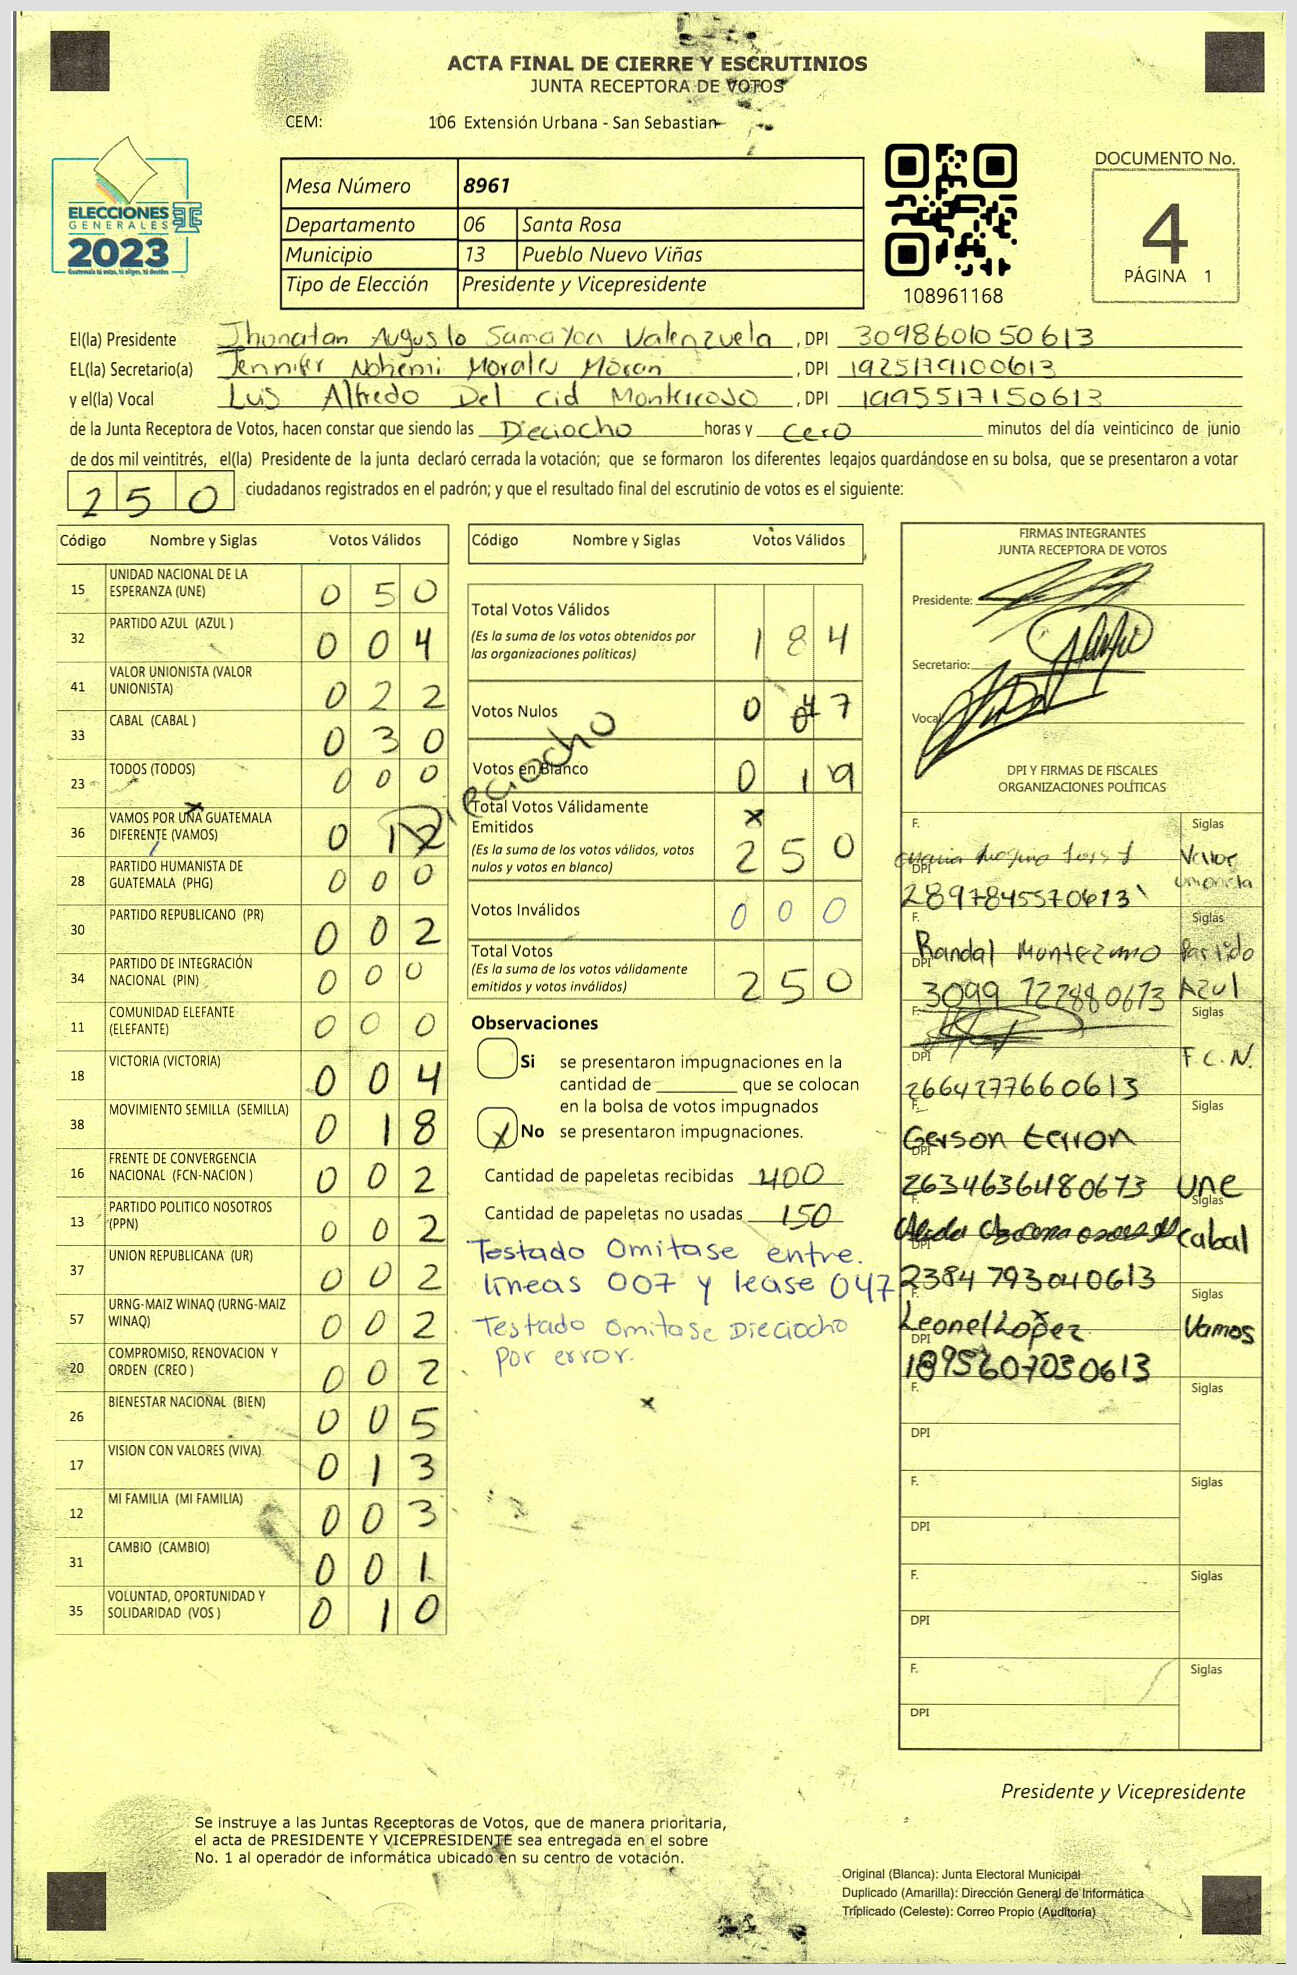 ACTA FINAL DE CIERRE Y ESCRUTINIOS
JUNTA RECEPTORA DE VOTOS
CEM: 106 Extensión Urbana - San Sebastian
ELECCIONES
GENERALES
2023
Guatemala tú votas, tú eliges, tú decides
Mesa Número 8961
Departamento 06 Santa Rosa
Municipio 13 Pueblo Nuevo Viñas
Tipo de Elección Presidente y Vicepresidente
108961168
DOCUMENTO No.
4
PÁGINA 1
El(la) Presidente Jhonatan Augusto Samayoa Valenzuela, DPI 3098601050613
EL(la) Secretario(a) Jennifer Nohemi Morales Moran, DPI 1925179100613
y el(la) Vocal Luis Alfredo Del Cid Monterroso, DPI 1995517150613
de la Junta Receptora de Votos, hacen constar que siendo las Dieciocho horas y cero minutos del día veinticinco de junio
de dos mil veintitrés, el(la) Presidente de la junta declaró cerrada la votación; que se formaron los diferentes legajos guardándose en su bolsa, que se presentaron a votar
250 ciudadanos registrados en el padrón; y que el resultado final del escrutinio de votos es el siguiente:
Código Nombre y Siglas Votos Válidos
15 UNIDAD NACIONAL DE LA ESPERANZA (UNE) 0 5 0
32 PARTIDO AZUL (AZUL ) 0 0 4
41 VALOR UNIONISTA (VALOR UNIONISTA) 0 2 2
33 CABAL (CABAL ) 0 3 0
23 TODOS (TODOS) 0 0 0
36 VAMOS POR UNA GUATEMALA DIFERENTE (VAMOS) 0 1 2
Dieciocho
28 PARTIDO HUMANISTA DE GUATEMALA (PHG) 0 0 0
30 PARTIDO REPUBLICANO (PR) 0 0 2
34 PARTIDO DE INTEGRACIÓN NACIONAL (PIN) 0 0 0
11 COMUNIDAD ELEFANTE (ELEFANTE) 0 0 0
18 VICTORIA (VICTORIA) 0 0 4
38 MOVIMIENTO SEMILLA (SEMILLA) 0 1 8
16 FRENTE DE CONVERGENCIA NACIONAL (FCN-NACION ) 0 0 2
13 PARTIDO POLITICO NOSOTROS (PPN) 0 0 2
37 UNION REPUBLICANA (UR) 0 0 2
57 URNG-MAIZ WINAQ (URNG-MAIZ WINAQ) 0 0 2
20 COMPROMISO, RENOVACION Y ORDEN (CREO ) 0 0 2
26 BIENESTAR NACIONAL (BIEN) 0 0 5
17 VISION CON VALORES (VIVA) 0 1 3
12 MI FAMILIA (MI FAMILIA) 0 0 3
31 CAMBIO (CAMBIO) 0 0 1
35 VOLUNTAD, OPORTUNIDAD Y SOLIDARIDAD (VOS ) 0 1 0
Código Nombre y Siglas Votos Válidos
Total Votos Válidos 1 8 4
(Es la suma de los votos obtenidos por
las organizaciones políticas)
Votos Nulos 0 4 7
Votos en Blanco 0 1 9
Total Votos Válidamente
Emitidos 2 5 0
(Es la suma de los votos válidos, votos
nulos y votos en blanco)
Votos Inválidos 0 0 0
Total Votos 2 5 0
(Es la suma de los votos válidamente
emitidos y votos inválidos)
Observaciones
Si se presentaron impugnaciones en la
cantidad de ________ que se colocan
en la bolsa de votos impugnados
X No se presentaron impugnaciones.
Cantidad de papeletas recibidas 400
Cantidad de papeletas no usadas 150
Testado Omitase entre.
lineas 007 y lease 047
Testado Omitase Dieciocho
por error.
FIRMAS INTEGRANTES
JUNTA RECEPTORA DE VOTOS
Presidente:
Secretario:
Vocal
DPI Y FIRMAS DE FISCALES
ORGANIZACIONES POLÍTICAS
F. Siglas
Valor
unionista
DPI 2897845570613
F. Siglas
Randal Montezmo Partido
DPI 3099 722880673 Azul
F. Siglas
F.C.N.
DPI 2664277660613
F. Siglas
Gerson Terron
DPI 2634636480673 une
F. Siglas
cabal
DPI 2384 793040613
F. Siglas
Leonel Lopez Vamos
DPI 1895607030613
F. Siglas
DPI
F. Siglas
DPI
F. Siglas
DPI
F. Siglas
DPI
Presidente y Vicepresidente
Se instruye a las Juntas Receptoras de Votos, que de manera prioritaria,
el acta de PRESIDENTE Y VICEPRESIDENTE sea entregada en el sobre
No. 1 al operador de informática ubicado en su centro de votación.
Original (Blanca): Junta Electoral Municipal
Duplicado (Amarilla): Dirección General de Informática
Triplicado (Celeste): Correo Propio (Auditoría)